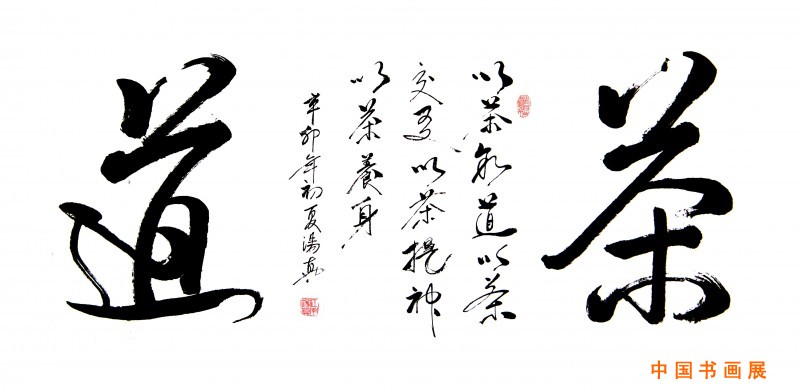 茶
以茶道以茶
交友以茶提神
以茶養身
辛卯年初夏湯真
道
中国书画展